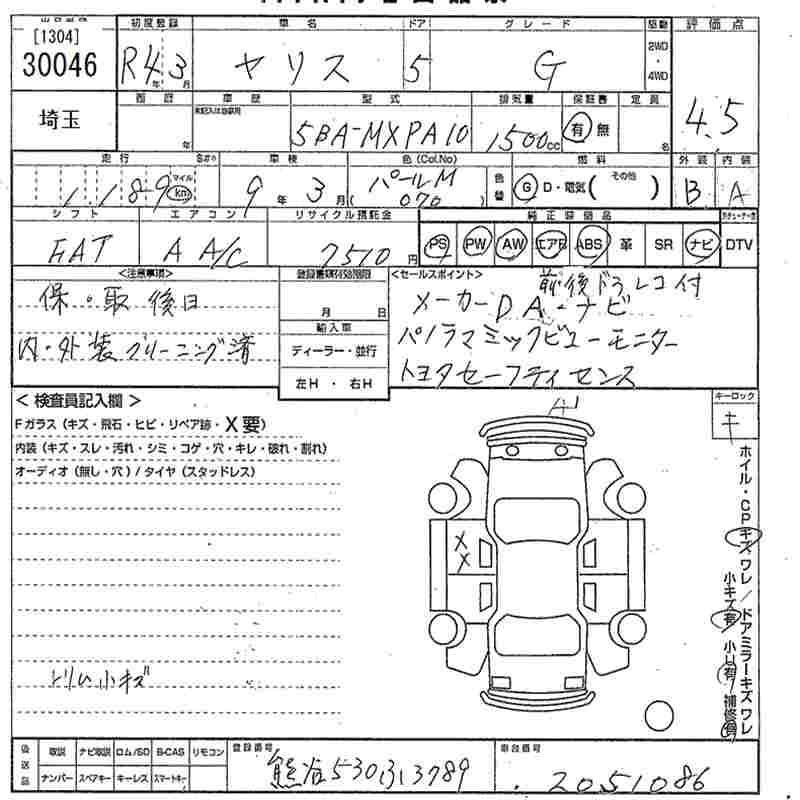 [1304]
30046
埼玉
初度登録 車名 ドア グレード 駆動 評価点
R4年3月 ヤリス 5 G 2WD・4WD 4.5
車歴 型式 排気量 保証書 定員
年 5BA-MXPA10 1500cc 有 無 名
走行 車検 色(Col.No) 色替 燃料 外装 内装
マイル km 9年3月 パールM (070) G D・電気( その他 ) B A
シフト エアコン リサイクル預託金 純正装備品
FAT A A/C 7510円 PS PW AW エアB ABS 革 SR ナビ DTV
<注意事項>
保・取 後日
内・外装クリーニング済
月 日
輸入車
ディーラー・並行
左H ・ 右H
<セールスポイント> 前後ドラレコ付
メーカーDA・ナビ
パノラミックビューモニター
トヨタセーフティセンス
<検査員記入欄>
Fガラス(キズ・飛石・ヒビ・リペア跡・X要)
内装(キズ・スレ・汚れ・シミ・コゲ・穴・キレ・破れ・割れ)
オーディオ(無し・穴)/タイヤ(スタッドレス)
トリム小キズ
A1
X
X
キーロック
キ
ホイル・CPキズ ワレ/ドアミラーキズ ワレ
小キズ有 小凹有 補修有
後送品 取説 ナビ取説 ロム/SD B-CAS リモコン
ナンバー スペアキー キーレス スマートキー
登録番号 熊谷530 313789
車台番号 2051086